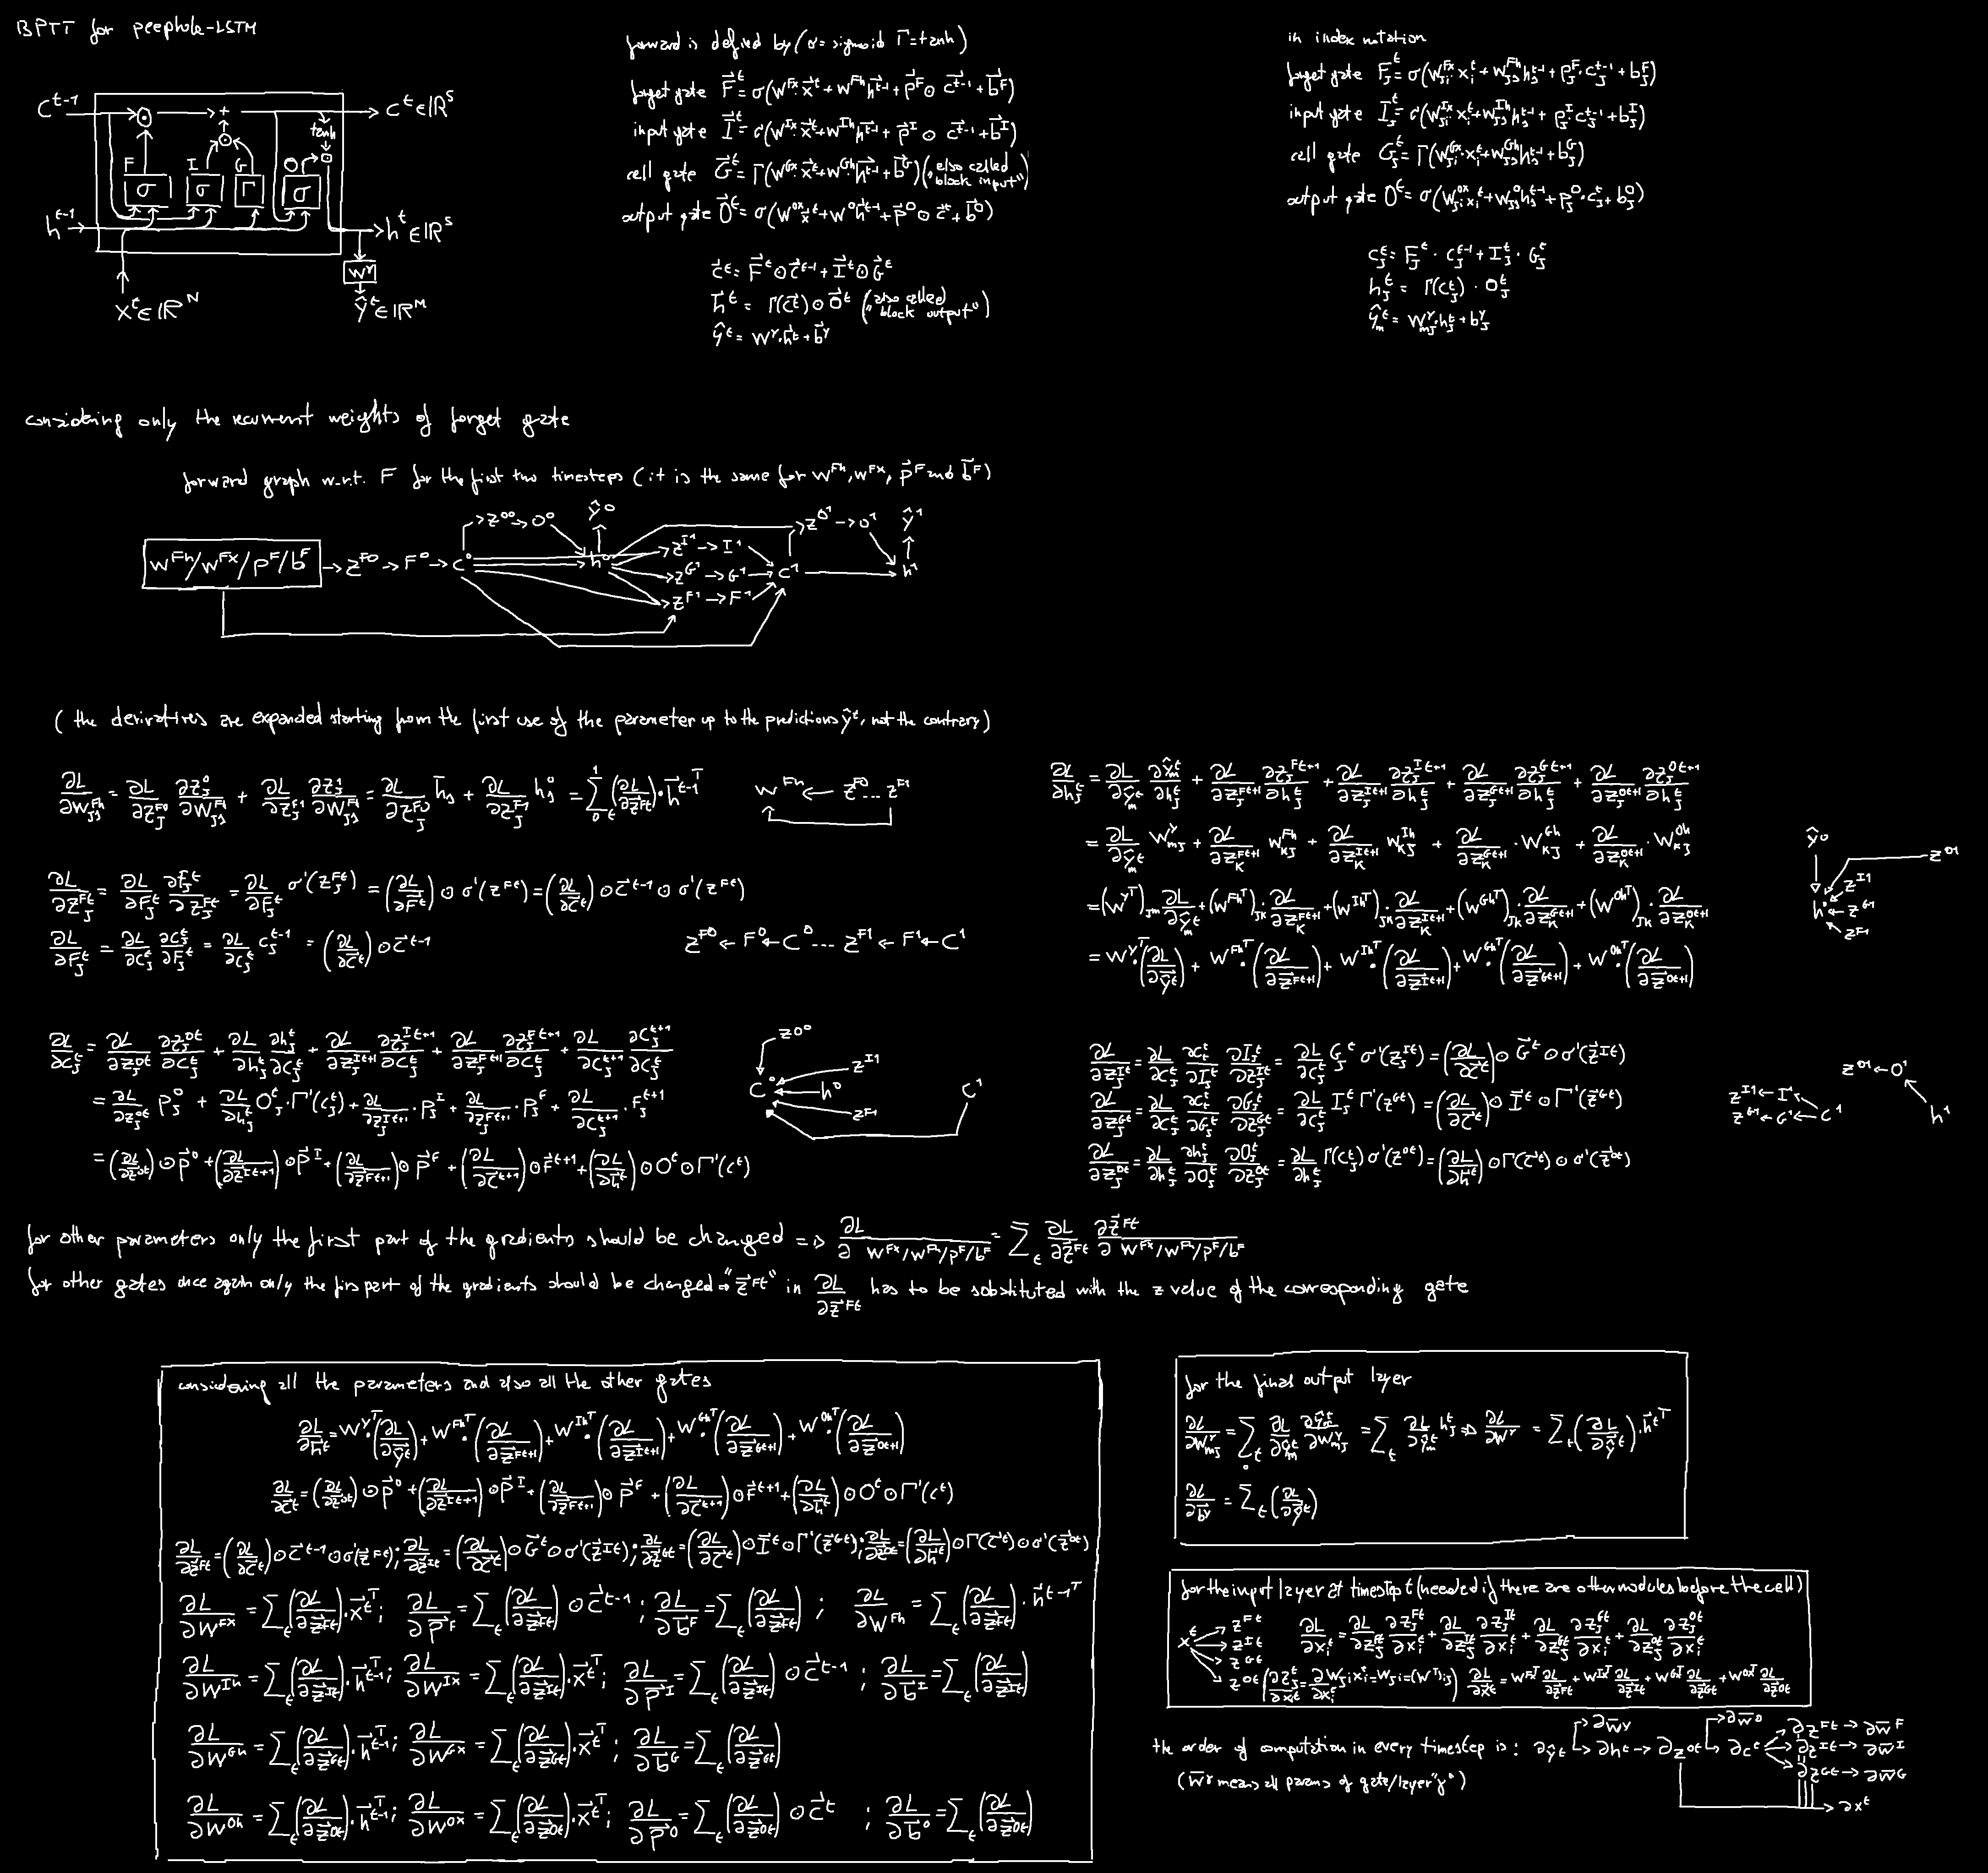 BPTT for peephole-LSTM
c^{t-1} → c^t ∈ ℝ^S
tanh
F I G O
σ σ Γ σ
h^{t-1} → h^t ∈ ℝ^S
W^Y
x^t ∈ ℝ^N
ŷ^t ∈ ℝ^M
forward is defined by (σ=sigmoid Γ=tanh)
forget gate F⃗^t = σ(W^{Fx}·x⃗^t + W^{Fh}h⃗^{t-1} + p⃗^F ⊙ c⃗^{t-1} + b⃗^F)
input gate I⃗^t = σ(W^{Ix}·x⃗^t + W^{Ih}h⃗^{t-1} + p⃗^I ⊙ c⃗^{t-1} + b⃗^I)
cell gate G⃗^t = Γ(W^{Gx}·x⃗^t + W^{Gh}·h⃗^{t-1} + b⃗^G) (also called "block input")
output gate O⃗^t = σ(W^{Ox}x⃗^t + W^O h⃗^{t-1} + p⃗^O ⊙ c⃗^t + b⃗^O)
c⃗^t = F⃗^t ⊙ c⃗^{t-1} + I⃗^t ⊙ G⃗^t
h⃗^t = Γ(c⃗^t) ⊙ O⃗^t (also called "block output")
ŷ^t = W^Y·h⃗^t + b⃗^Y
in index notation
forget gate F_J^t = σ(W_{Ji}^{Fx}·x_i^t + W_{JS}^{Fh}h_S^{t-1} + p_J^F·c_J^{t-1} + b_J^F)
input gate I_J^t = σ(W_{Ji}^{Ix}·x_i^t + W_{JS}^{Ih}h_S^{t-1} + p_J^I c_J^{t-1} + b_J^I)
cell gate G_J^t = Γ(W_{Ji}^{Gx}·x_i^t + W_{JS}^{Gh}h_S^{t-1} + b_J^G)
output gate O^t = σ(W_{Ji}^{Ox}x_i^t + W_{JS}^O h_S^{t-1} + p_J^O·c_J^t + b_J^O)
c_J^t = F_J^t · c_J^{t-1} + I_J^t · G_J^t
h_J^t = Γ(c_J^t) · O_J^t
ŷ_m^t = W_{mJ}^Y·h_J^t + b_J^Y
considering only the recurrent weights of forget gate
forward graph w.r.t. F for the first two timesteps (it is the same for W^{Fh}, W^{Fx}, p⃗^F and b⃗^F)
z^{O0} → O^0 ŷ^0 z^{O1} → O^1 ŷ^1
W^{Fh}/W^{Fx}/p^F/b^F → z^{F0} → F^0 → c^0 h^0 z^{I1} → I^1
z^{G1} → G^1 → c^1 → h^1
z^{F1} → F^1
(the derivatives are expanded starting from the first use of the parameter up to the predictions ŷ^t, not the contrary)
∂L/∂W_{JS}^{Fh} = ∂L/∂z_J^{F0} ∂z_J^0/∂W_{JS}^{Fh} + ∂L/∂z_J^{F1} ∂z_J^1/∂W_{JS}^{Fh} = ∂L/∂z_J^{F0} h̄_S + ∂L/∂z_J^{F1} h_S^0 = Σ_{0 t}^1 (∂L/∂z⃗^{Ft})·h⃗^{t-1 T}
W^{Fh} ← z^{F0} ... z^{F1}
∂L/∂z_J^{Ft} = ∂L/∂F_J^t ∂F_J^t/∂z_J^{Ft} = ∂L/∂F_J^t σ'(z_J^{Ft}) = (∂L/∂F⃗^t) ⊙ σ'(z^{Ft}) = (∂L/∂c⃗^t) ⊙ c⃗^{t-1} ⊙ σ'(z^{Ft})
∂L/∂F_J^t = ∂L/∂c_J^t ∂c_J^t/∂F_J^t = ∂L/∂c_J^t c_J^{t-1} = (∂L/∂c⃗^t) ⊙ c⃗^{t-1}
z^{F0} ← F^0 ← c^0 ... z^{F1} ← F^1 ← c^1
∂L/∂c_J^t = ∂L/∂z^{Ot} ∂z_J^{Ot}/∂c_J^t + ∂L/∂h_J^t ∂h_J^t/∂c_J^t + ∂L/∂z_J^{It+1} ∂z_J^{It+1}/∂c_J^t + ∂L/∂z_J^{Ft+1} ∂z_J^{Ft+1}/∂c_J^t + ∂L/∂c_J^{t+1} ∂c_J^{t+1}/∂c_J^t
= ∂L/∂z_J^{Ot} p_J^O + ∂L/∂h_J^t O_J^t·Γ'(c_J^t) + ∂L/∂z_J^{It+1}·p_J^I + ∂L/∂z_J^{Ft+1}·p_J^F + ∂L/∂c_J^{t+1}·F_J^{t+1}
= (∂L/∂z⃗^{Ot}) ⊙ p⃗^O + (∂L/∂z⃗^{It+1}) ⊙ p⃗^I + (∂L/∂z⃗^{Ft+1}) ⊙ p⃗^F + (∂L/∂c⃗^{t+1}) ⊙ F⃗^{t+1} + (∂L/∂h⃗^t) ⊙ O^t ⊙ Γ'(c^t)
z^{O0}
z^{I1}
c^0 h^0 c^1
z^{F1}
∂L/∂h_J^t = ∂L/∂ŷ_m^t ∂ŷ_m^t/∂h_J^t + ∂L/∂z_J^{Ft+1} ∂z_J^{Ft+1}/∂h_J^t + ∂L/∂z_J^{It+1} ∂z_J^{It+1}/∂h_J^t + ∂L/∂z_J^{Gt+1} ∂z_J^{Gt+1}/∂h_J^t + ∂L/∂z_J^{Ot+1} ∂z_J^{Ot+1}/∂h_J^t
= ∂L/∂ŷ_m^t W_{mJ}^Y + ∂L/∂z_K^{Ft+1} W_{KJ}^{Fh} + ∂L/∂z_K^{It+1} W_{KJ}^{Ih} + ∂L/∂z_K^{Gt+1}·W_{KJ}^{Gh} + ∂L/∂z_K^{Ot+1}·W_{KJ}^{Oh}
= (W^{Y T})_{Jm} ∂L/∂ŷ_m^t + (W^{Fh T})_{JK}·∂L/∂z_K^{Ft+1} + (W^{Ih T})_{JK}·∂L/∂z_K^{It+1} + (W^{Gh T})_{JK}·∂L/∂z_K^{Gt+1} + (W^{Oh T})_{JK}·∂L/∂z_K^{Ot+1}
= W^{Y T}·(∂L/∂ŷ^t) + W^{Fh T}·(∂L/∂z⃗^{Ft+1}) + W^{Ih T}·(∂L/∂z⃗^{It+1}) + W^{Gh T}·(∂L/∂z⃗^{Gt+1}) + W^{Oh T}·(∂L/∂z⃗^{Ot+1})
ŷ^0
z^{O1}
z^{I1}
h^0 ← z^{G1}
z^{F1}
∂L/∂z_J^{It} = ∂L/∂c_J^t ∂c_J^t/∂I_J^t ∂I_J^t/∂z_J^{It} = ∂L/∂c_J^t G_J^t σ'(z_J^{It}) = (∂L/∂c⃗^t) ⊙ G⃗^t ⊙ σ'(z⃗^{It})
∂L/∂z_J^{Gt} = ∂L/∂c_J^t ∂c_J^t/∂G_J^t ∂G_J^t/∂z_J^{Gt} = ∂L/∂c_J^t I_J^t Γ'(z^{Gt}) = (∂L/∂c⃗^t) ⊙ I⃗^t ⊙ Γ'(z⃗^{Gt})
∂L/∂z_J^{Ot} = ∂L/∂h_J^t ∂h_J^t/∂O_J^t ∂O_J^t/∂z_J^{Ot} = ∂L/∂h_J^t Γ(c_J^t) σ'(z^{Ot}) = (∂L/∂h⃗^t) ⊙ Γ(c⃗^t) ⊙ σ'(z⃗^{Ot})
z^{O1} ← O^1
z^{I1} ← I^1
z^{G1} ← G^1 ← c^1 h^1
for other parameters only the first part of the gradients should be changed => ∂L/∂ W^{Fx}/W^{Fh}/p^F/b^F = Σ_t ∂L/∂z⃗^{Ft} ∂z⃗^{Ft}/∂ W^{Fx}/W^{Fh}/p^F/b^F
for other gates once again only the firs part of the gradients should be changed → "z⃗^{Ft}" in ∂L/∂z⃗^{Ft} has to be substituted with the z value of the corresponding gate
considering all the parameters and also all the other gates
∂L/∂h⃗^t = W^{Y T}·(∂L/∂ŷ^t) + W^{Fh T}·(∂L/∂z⃗^{Ft+1}) + W^{Ih T}·(∂L/∂z⃗^{It+1}) + W^{Gh T}·(∂L/∂z⃗^{Gt+1}) + W^{Oh T}·(∂L/∂z⃗^{Ot+1})
∂L/∂c⃗^t = (∂L/∂z⃗^{Ot}) ⊙ p⃗^O + (∂L/∂z⃗^{It+1}) ⊙ p⃗^I + (∂L/∂z⃗^{Ft+1}) ⊙ p⃗^F + (∂L/∂c⃗^{t+1}) ⊙ F⃗^{t+1} + (∂L/∂h⃗^t) ⊙ O^t ⊙ Γ'(c^t)
∂L/∂z⃗^{Ft} = (∂L/∂c⃗^t) ⊙ c⃗^{t-1} ⊙ σ'(z⃗^{Ft}); ∂L/∂z⃗^{It} = (∂L/∂c⃗^t) ⊙ G⃗^t ⊙ σ'(z⃗^{It}); ∂L/∂z⃗^{Gt} = (∂L/∂c⃗^t) ⊙ I⃗^t ⊙ Γ'(z⃗^{Gt}); ∂L/∂z⃗^{Ot} = (∂L/∂h⃗^t) ⊙ Γ(c⃗^t) ⊙ σ'(z⃗^{Ot})
∂L/∂W^{Fx} = Σ_t (∂L/∂z⃗^{Ft})·x⃗^{t T}; ∂L/∂p⃗^F = Σ_t (∂L/∂z⃗^{Ft}) ⊙ c⃗^{t-1}; ∂L/∂b⃗^F = Σ_t (∂L/∂z⃗^{Ft}); ∂L/∂W^{Fh} = Σ_t (∂L/∂z⃗^{Ft})·h⃗^{t-1 T}
∂L/∂W^{Ih} = Σ_t (∂L/∂z⃗^{It})·h⃗^{t-1 T}; ∂L/∂W^{Ix} = Σ_t (∂L/∂z⃗^{It})·x⃗^{t T}; ∂L/∂p⃗^I = Σ_t (∂L/∂z⃗^{It}) ⊙ c⃗^{t-1}; ∂L/∂b⃗^I = Σ_t (∂L/∂z⃗^{It})
∂L/∂W^{Gh} = Σ_t (∂L/∂z⃗^{Gt})·h⃗^{t-1 T}; ∂L/∂W^{Gx} = Σ_t (∂L/∂z⃗^{Gt})·x⃗^{t T}; ∂L/∂b⃗^G = Σ_t (∂L/∂z⃗^{Gt})
∂L/∂W^{Oh} = Σ_t (∂L/∂z⃗^{Ot})·h⃗^{t-1 T}; ∂L/∂W^{Ox} = Σ_t (∂L/∂z⃗^{Ot})·x⃗^{t T}; ∂L/∂p⃗^O = Σ_t (∂L/∂z⃗^{Ot}) ⊙ c⃗^t; ∂L/∂b⃗^O = Σ_t (∂L/∂z⃗^{Ot})
for the final output layer
∂L/∂W_{mJ}^Y = Σ_t ∂L/∂ŷ_m^t ∂ŷ_m^t/∂W_{mJ}^Y = Σ_t ∂L/∂ŷ_m^t h_J^t => ∂L/∂W^Y = Σ_t (∂L/∂ŷ^t)·h⃗^{t T}
∂L/∂b⃗^Y = Σ_t (∂L/∂ŷ^t)
for the input layer at timestep t (needed if there are other modules before the cell)
x^t z^{Ft} z^{It} z^{Gt} z^{Ot}
∂L/∂x_i^t = ∂L/∂z_J^{Ft} ∂z_J^{Ft}/∂x_i^t + ∂L/∂z_J^{It} ∂z_J^{It}/∂x_i^t + ∂L/∂z_J^{Gt} ∂z_J^{Gt}/∂x_i^t + ∂L/∂z_J^{Ot} ∂z_J^{Ot}/∂x_i^t
(∂z_J^t/∂x_i^t = ∂W_{Ji}x_i^t/∂x_i^t = W_{Ji} = (W^T)_{iJ}) ∂L/∂x⃗^t = W^{Fx T} ∂L/∂z⃗^{Ft} + W^{Ix T} ∂L/∂z⃗^{It} + W^{Gx T} ∂L/∂z⃗^{Gt} + W^{Ox T} ∂L/∂z⃗^{Ot}
the order of computation in every timestep is: ∂ŷ^t → ∂W̄^Y → ∂h^t → ∂z^{Ot} → ∂W̄^O → ∂c^t → ∂z^{Ft} → ∂W̄^F
∂z^{It} → ∂W̄^I
(W̄^γ means all params of gate/layer "γ") ∂z^{Gt} → ∂W̄^G
→ ∂x^t